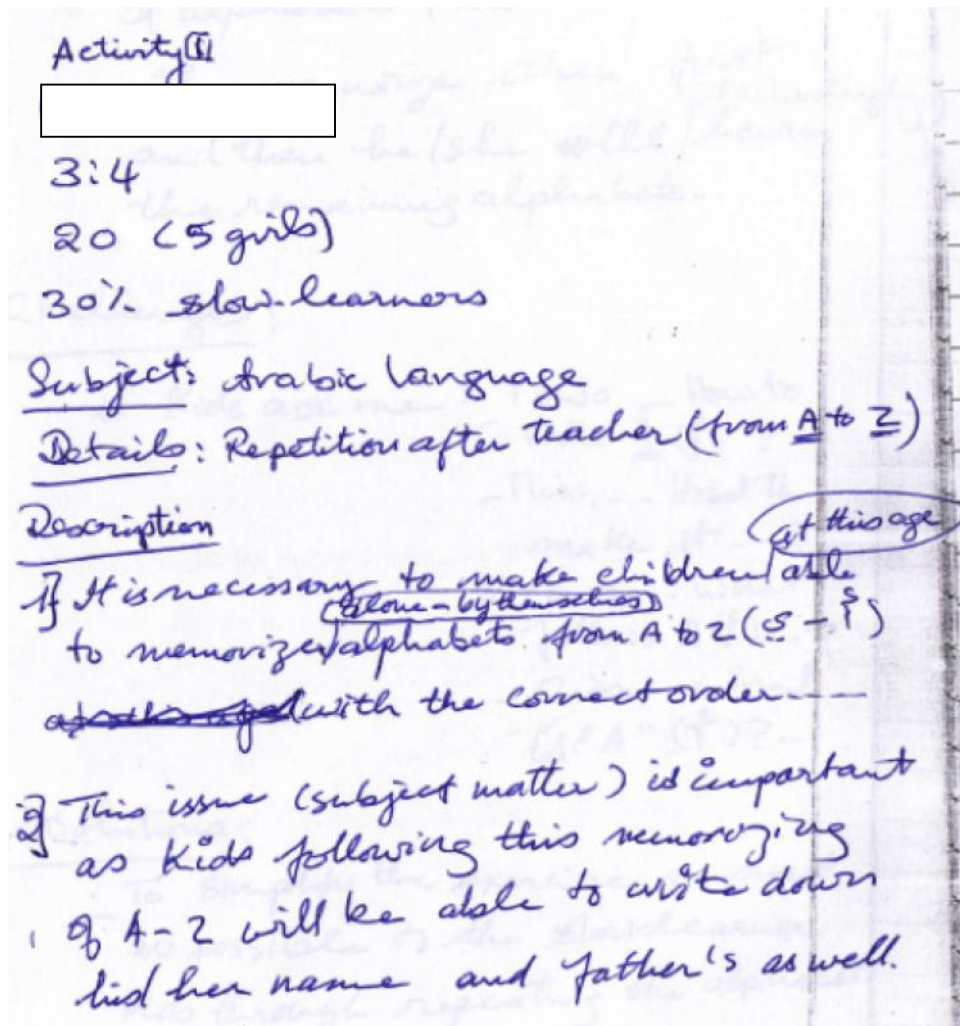 Activity (1)
3:4
20 (5 girls)
30% slow-learners
Subject: Arabic Language
Details: Repetition after teacher (from A to Z)
Description
at this age
1] It is necessary to make children able
(alone - by themselves)
to memorize alphabets from A to Z (ي - أ)
with the correct order.
2] This issue (subject matter) is important
as kids following this memorizing
of A-Z will be able to write down
his her name and father's as well.